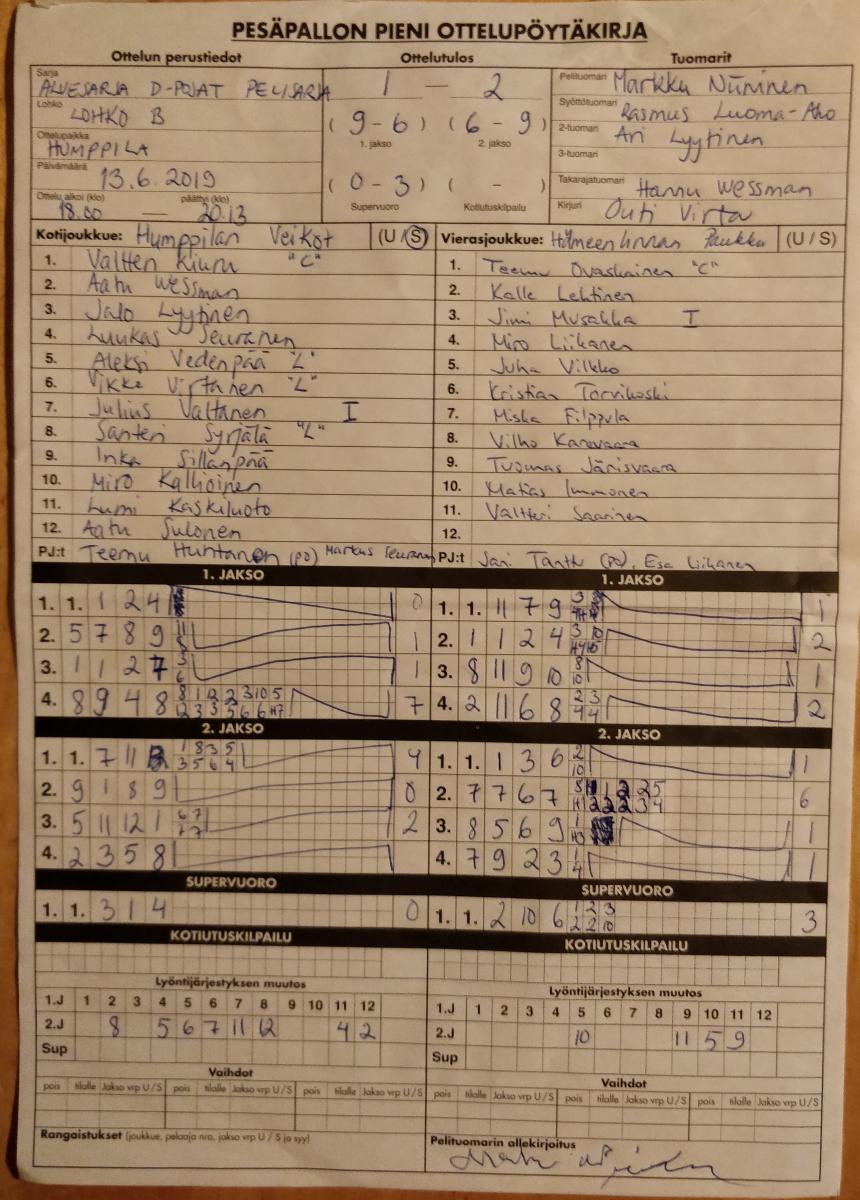 PESÄPALLON PIENI OTTELUPÖYTÄKIRJA
Ottelun perustiedot Ottelutulos Tuomarit
Sarja
ALUESARJA D-POJAT PELISARJA
Lohko
LOHKO B
Ottelupaikka
HUMPPILA
Päivämäärä
13.6.2019
Ottelu alkoi (klo) päättyi (klo)
18.00 — 20.13
1 — 2
(9-6) (6-9)
1. jakso 2. jakso
(0-3) ( - )
Supervuoro Kotiutuskilpailu
Pelituomari Markku Niininen
Syöttötuomari Rasmus Luoma-Aho
2-tuomari Ari Lyytinen
3-tuomari
Takarajatuomari Hannu Wessman
Kirjuri Outi Virta
Kotijoukkue: Humppilan Veikot (U/S)
1. Valtteri Kiuru "C"
2. Aatu Wessman
3. Jalo Lyytinen
4. Luukas Seuranen
5. Aleksi Vedenpää "L"
6. Vikke Virtanen "L"
7. Julius Valtanen I
8. Santeri Syrjälä "L"
9. Inka Sillanpää
10. Miro Kallioinen
11. Lumi Kaskiluoto
12. Aatu Sulonen
PJ:t Teemu Huhtanen (PO) Markus Seuranen
Vierasjoukkue: Hämeenlinnan Paukku (U/S)
1. Teemu Ovaskainen "C"
2. Kalle Lehtinen
3. Jimi Musakka I
4. Miro Liikanen
5. Juha Vilkko
6. Kristian Torvikoski
7. Miska Filppula
8. Vilho Karavaara
9. Tuomas Järisvaara
10. Matias Immonen
11. Valtteri Saarinen
12.
PJ:t Jari Tanttu (PO), Esa Liikanen
1. JAKSO
1. 1. 1 2 4 0
2. 5 7 8 9 1
3. 1 1 2 7 3 6 1
4. 8 9 4 8 7
2. JAKSO
1. 1. 7 11 1 8 3 5 3 5 6 4 4
2. 9 1 8 9 0
3. 5 11 12 1 6 7 7 7 2
4. 2 3 5 8
SUPERVUORO
1. 1. 3 1 4 0
KOTIUTUSKILPAILU
1. JAKSO
1. 1. 11 7 9 1
2. 1 1 2 4 2
3. 8 11 9 10 8 10 1
4. 2 11 6 8 2 3 4 4 2
2. JAKSO
1. 1. 1 3 6 2 10 1
2. 7 7 6 7 6
3. 8 5 6 9 1
4. 7 9 2 3 1 4 1
SUPERVUORO
1. 1. 2 10 6 1 2 3 2 2 10 3
KOTIUTUSKILPAILU
Lyöntijärjestyksen muutos
1.J 1 2 3 4 5 6 7 8 9 10 11 12
2.J 8 5 6 7 11 12 4 2
Sup
Vaihdot
pois tilalle Jakso vrp U/S pois tilalle Jakso vrp U/S pois tilalle Jakso vrp U/S
Rangaistukset (joukkue, pelaaja nro, jakso vrp U/S ja syy)
Lyöntijärjestyksen muutos
1.J 1 2 3 4 5 6 7 8 9 10 11 12
2.J 10 11 5 9
Sup
Vaihdot
pois tilalle Jakso vrp U/S pois tilalle Jakso vrp U/S pois tilalle Jakso vrp U/S
Pelituomarin allekirjoitus